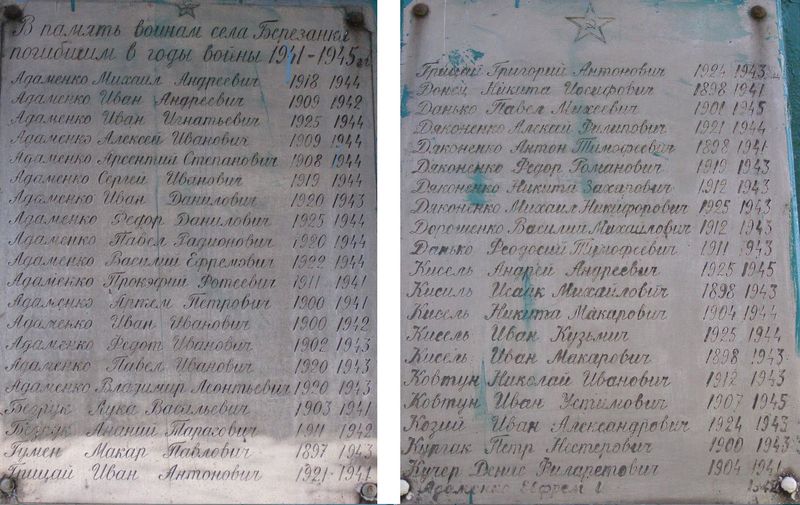 В память воинам села Березанки
погибшим в годы войны 1941-1945 гг
Адаменко Михаил Андреевич 1918 1944
Адаменко Иван Андреевич 1909 1942
Адаменко Иван Игнатьевич 1925 1944
Адаменко Алексей Иванович 1909 1944
Адаменко Арсентий Степанович 1908 1944
Адаменко Сергей Иванович 1919 1944
Адаменко Иван Данилович 1920 1943
Адаменко Федор Данилович 1925 1944
Адаменко Павел Радионович 1920 1944
Адаменко Василий Ефремович 1922 1944
Адаменко Прокофий Фотеевич 1911 1941
Адаменко Артем Петрович 1900 1941
Адаменко Иван Иванович 1900 1942
Адаменко Федот Иванович 1902 1943
Адаменко Павел Иванович 1920 1943
Адаменко Владимир Леонтьевич 1920 1943
Безрук Лука Васильевич 1903 1941
Безрук Ананий Тарасович 1911 1942
Гумен Макар Павлович 1897 1943
Грицай Иван Антонович 1921-1941
Грицай Григорий Антонович 1924 1943
Донец Никита Иосифович 1898 1941
Данько Павел Михеевич 1901 1945
Дяконенко Алексей Филипович 1921 1944
Дяконенко Антон Тимофеевич 1898 1941
Дяконенко Федор Романович 1919 1943
Дяконенко Никита Захарович 1912 1943
Дяконенко Михаил Никифорович 1925 1943
Дорошенко Василий Михайлович 1912 1943
Данько Феодосий Тимофеевич 1911 1943
Кисель Андрей Андреевич 1925 1945
Кисиль Исаак Михайлович 1898 1943
Кисель Никита Макарович 1904 1944
Кисель Иван Кузьмич 1925 1944
Кисель Иван Макарович 1898 1943
Ковтун Николай Иванович 1912 1943
Ковтун Иван Устимович 1907 1945
Козий Иван Александрович 1924 1943
Кургак Петр Нестерович 1900 1943
Кучер Денис Филаретович 1904 1941
Адаменко Ефрем 1942